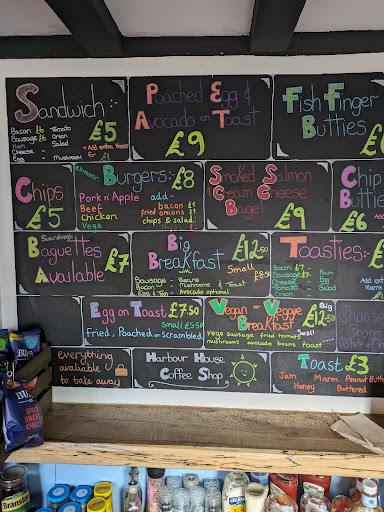 Sandwich:-
£5
Bacon £6 - Tomato
Sausage £6 - Onion
Ham - Salad
Cheese
Egg - Mushroom
+ Add extras
for
Poached Egg &
Avocado on Toast
£9
Fish Finger
Butties
£6
Chips
£5
Burgers:- £8
Pork n' Apple
Beef
Chicken
Vege
add -
bacon £9
fried onions £9
chips & salad
Smoked Salmon
Cream Cheese
Bagel £9
Chip
Butties
£6
Add
Baguettes £7
Available
Big £12.50
Breakfast
with
Small
£8.50
Sausage - Beans
Bacon - Mushrooms & Toast
Avocado optional
Toasties:-
Bacon £7 - Ham
Sausage £7 - Egg
Cheese - Salad
Tomato
Onion
Egg on Toast £7.50
Small £5.50
Fried, Poached or Scrambled
Vegan - Veggie
Breakfast
Big
£12.50
Small
Vege sausage fried tomato
mushrooms avocado beans toast
Choose
everything
avaliable
to take away
Harbour House
Coffee Shop
Toast £3
Jam Marm Peanut Butter
Honey Buttered
Sweet
Chilli
Branston